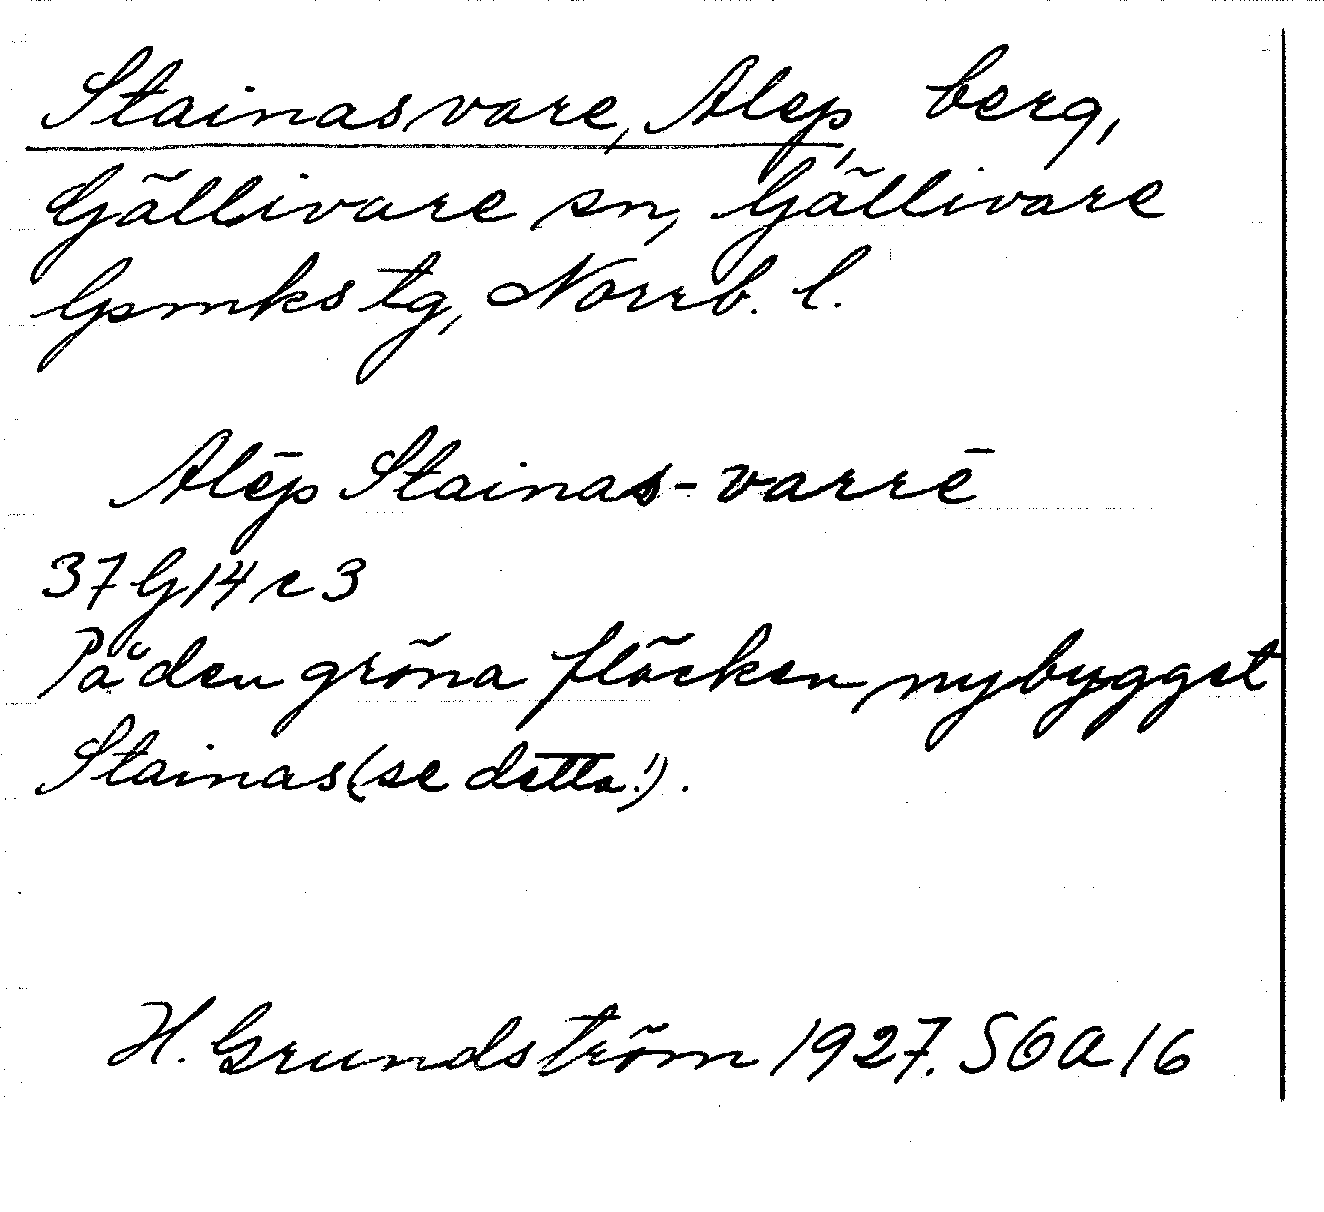 Stainasvare, Alep, berg,
Gällivare sn, Gällivare
Gsmks tg, Norrb. l.
Alēp Stainas-varrē
37 G 14 c 3
På den gröna fläcken nybygget
Stainas (se detta!).
H. Grundström 1927. SOA 16